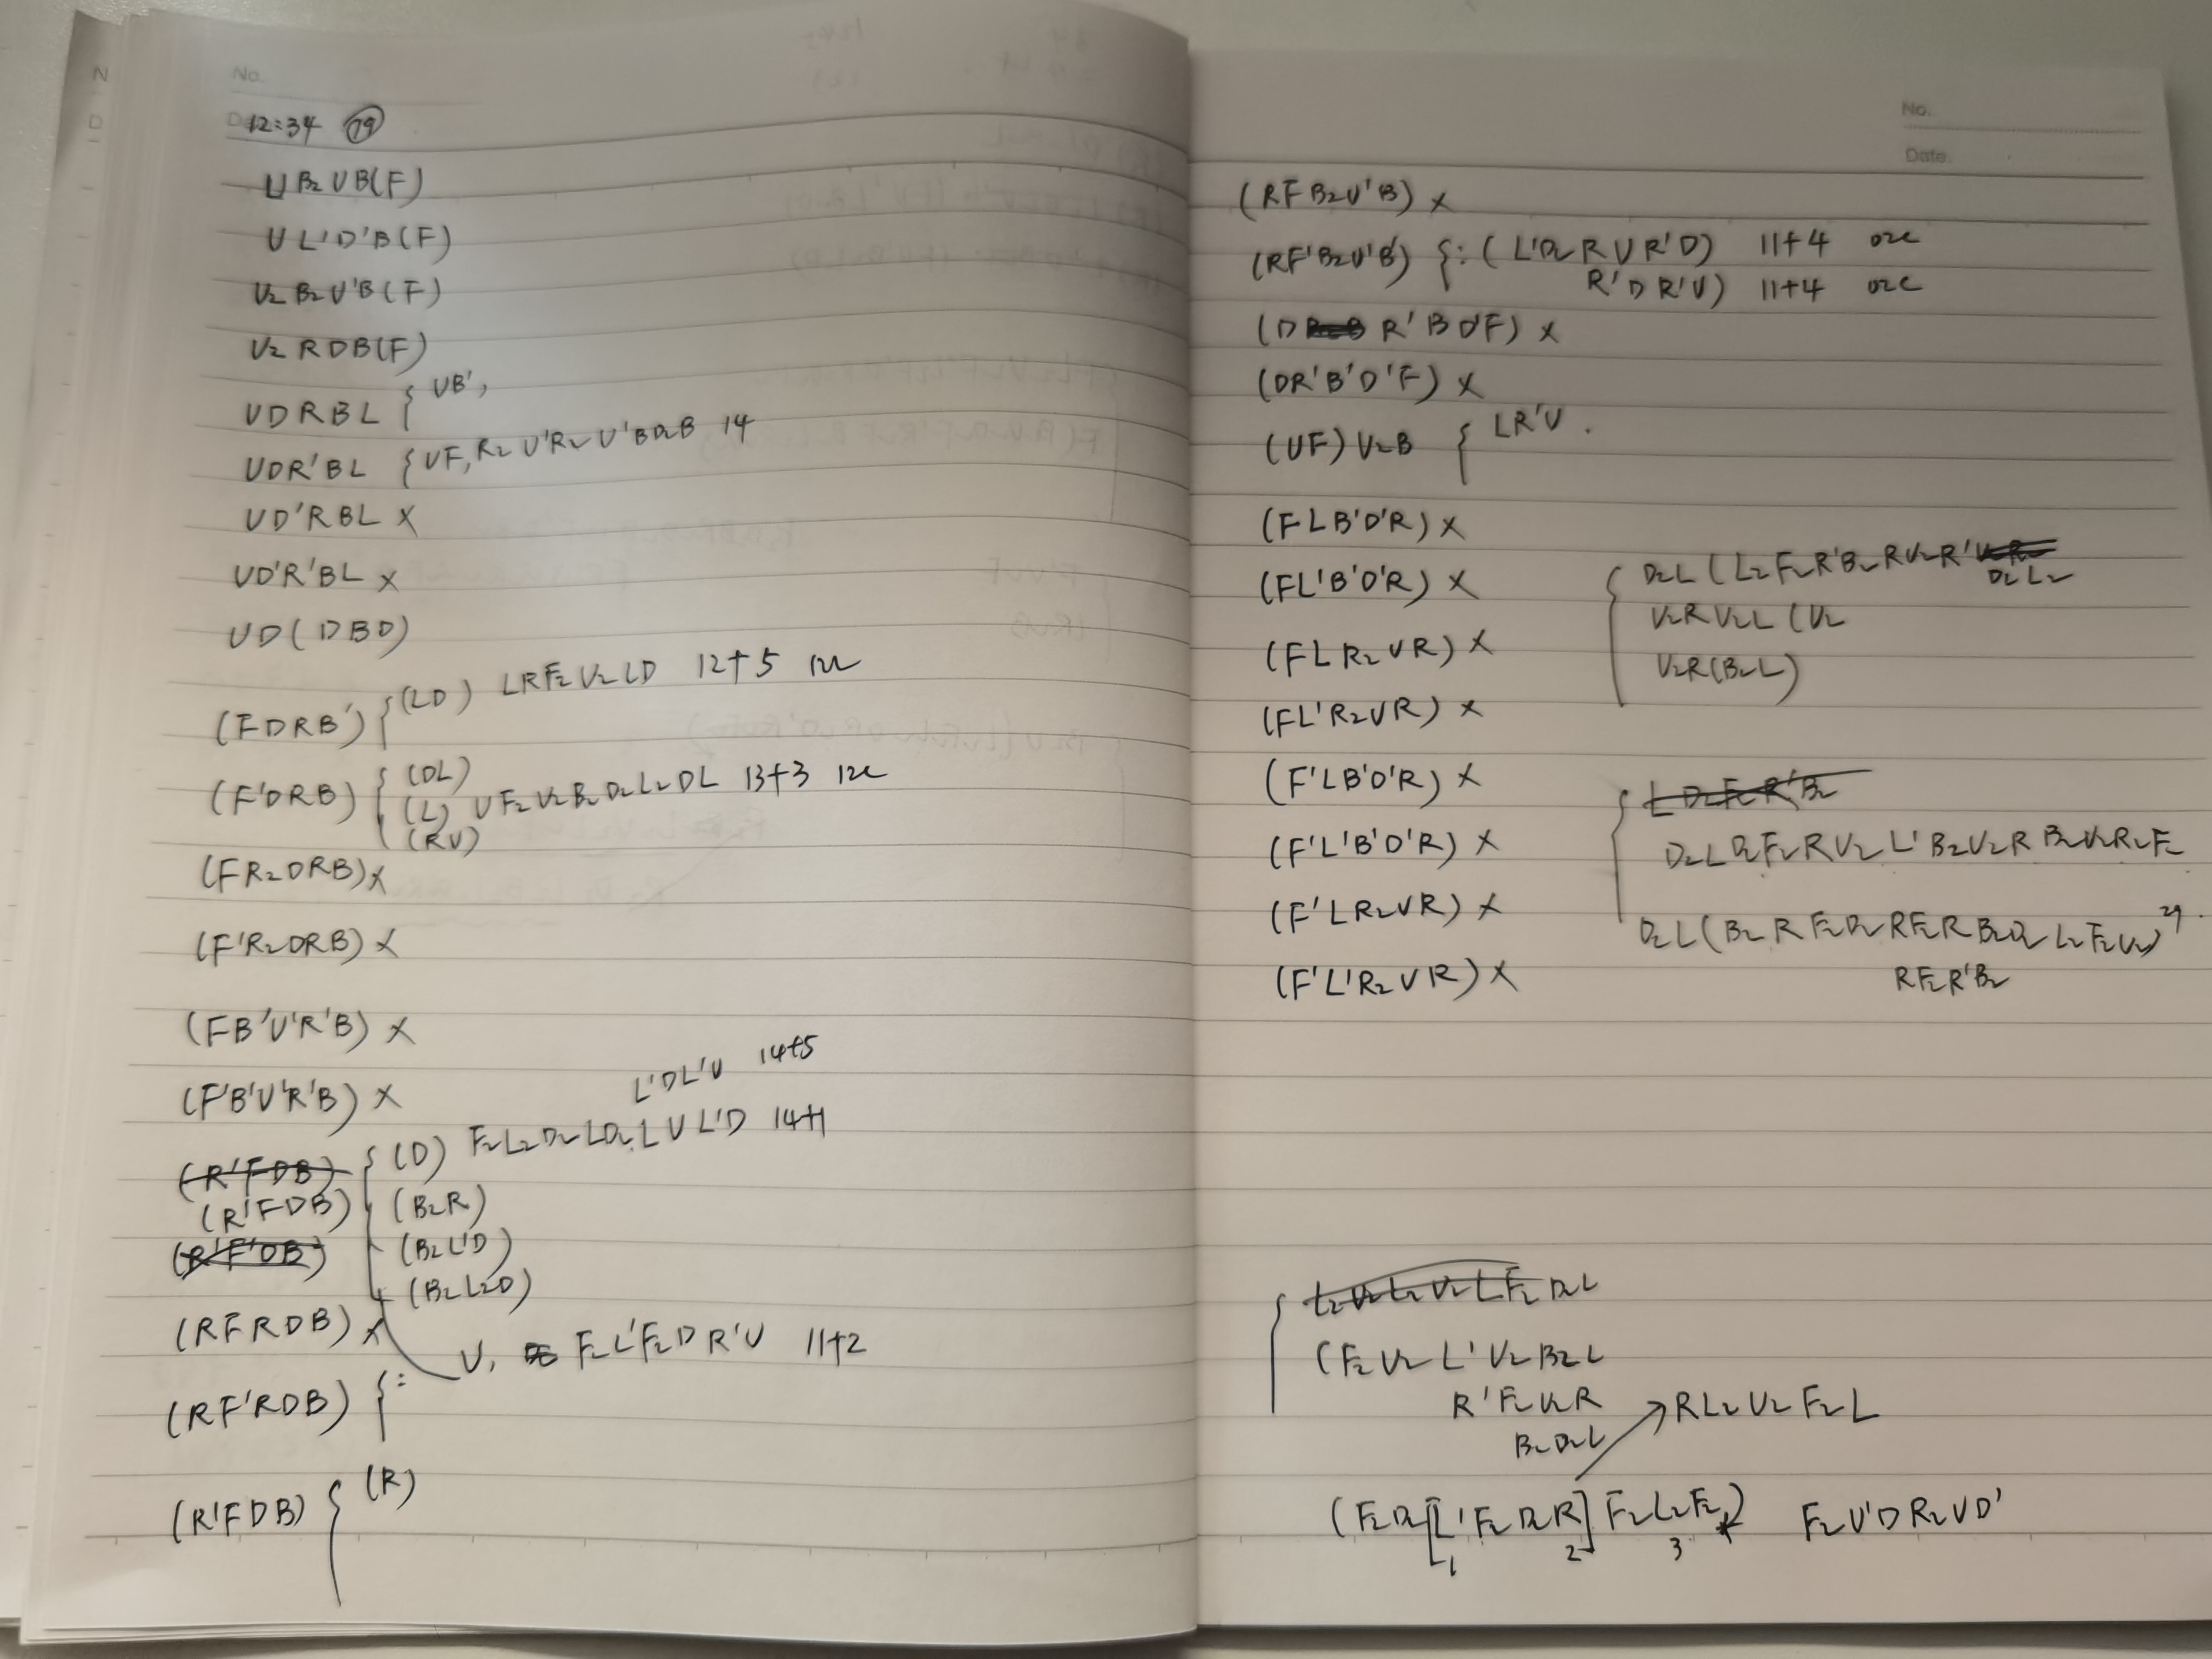 No.
12:34 19
U B2 U B(F)
U L' D' B(F)
U2 B2 U' B(F)
U2 R D B(F)
U D R B L { U B',
U D R' B L { U F, R2 U' R2 U' B D2 B 14
U D' R B L ×
U D' R' B L ×
U D ( D B D )
(F D R B') { (L D) L R F2 U2 L D 12+5
(F' D R B) { (D L)
(L) U F2 U2 B2 D2 L2 D L 13+3
(R U)
(F R2 D R B) ×
(F' R2 D R B) ×
(F B' U' R' B) ×
L' D L' U 14+5
(F' B' U' R' B) ×
(R' F D B) { (D) F2 L2 D2 L D2 L U L' D 14+1
(R' F D B) (B2 R)
(R' F' D B) (B2 L' D)
(B2 L2 D)
(R F R D B) ×
U, F2 L' F2 D R' U 11+2
(R F' R D B) { :
(R' F D B) { (R)
No.
Date.
(R F B2 U' B) ×
(R F' B2 U' B') { : ( L' D2 R U R' D) 11+4 02c
R' D R' U) 11+4 02c
(D R' B D' F) ×
(D R' B' D' F) ×
(U F) U2 B { L R' U .
(F L B' D' R) ×
(F L' B' D' R) × { D2 L ( L2 F2 R' B2 R U2 R'
D2 L2
U2 R U2 L (U2
(F L R2 U R) ×
U2 R (B2 L)
(F L' R2 U R) ×
(F' L B' D' R) × { L D2 F2 R' B2
(F' L' B' D' R) × D2 L D2 F2 R U2 L' B2 U2 R B2 U2 R2 F2
(F' L R2 U R) × D2 L ( B2 R F2 D2 R F2 R B2 D2 L2 F2 U2) 29 .
(F' L' R2 U R) × R F2 R' B2
{ L2 U2 L2 U2 L F2 D2 L
(F2 U2 L' U2 B2 L
R' F2 U2 R R L2 U2 F2 L
B2 D2 L
(F2 D2 [L' F2 D2 R] F2 L2 F2 ) F2 U' D R2 U D'
1 2 3